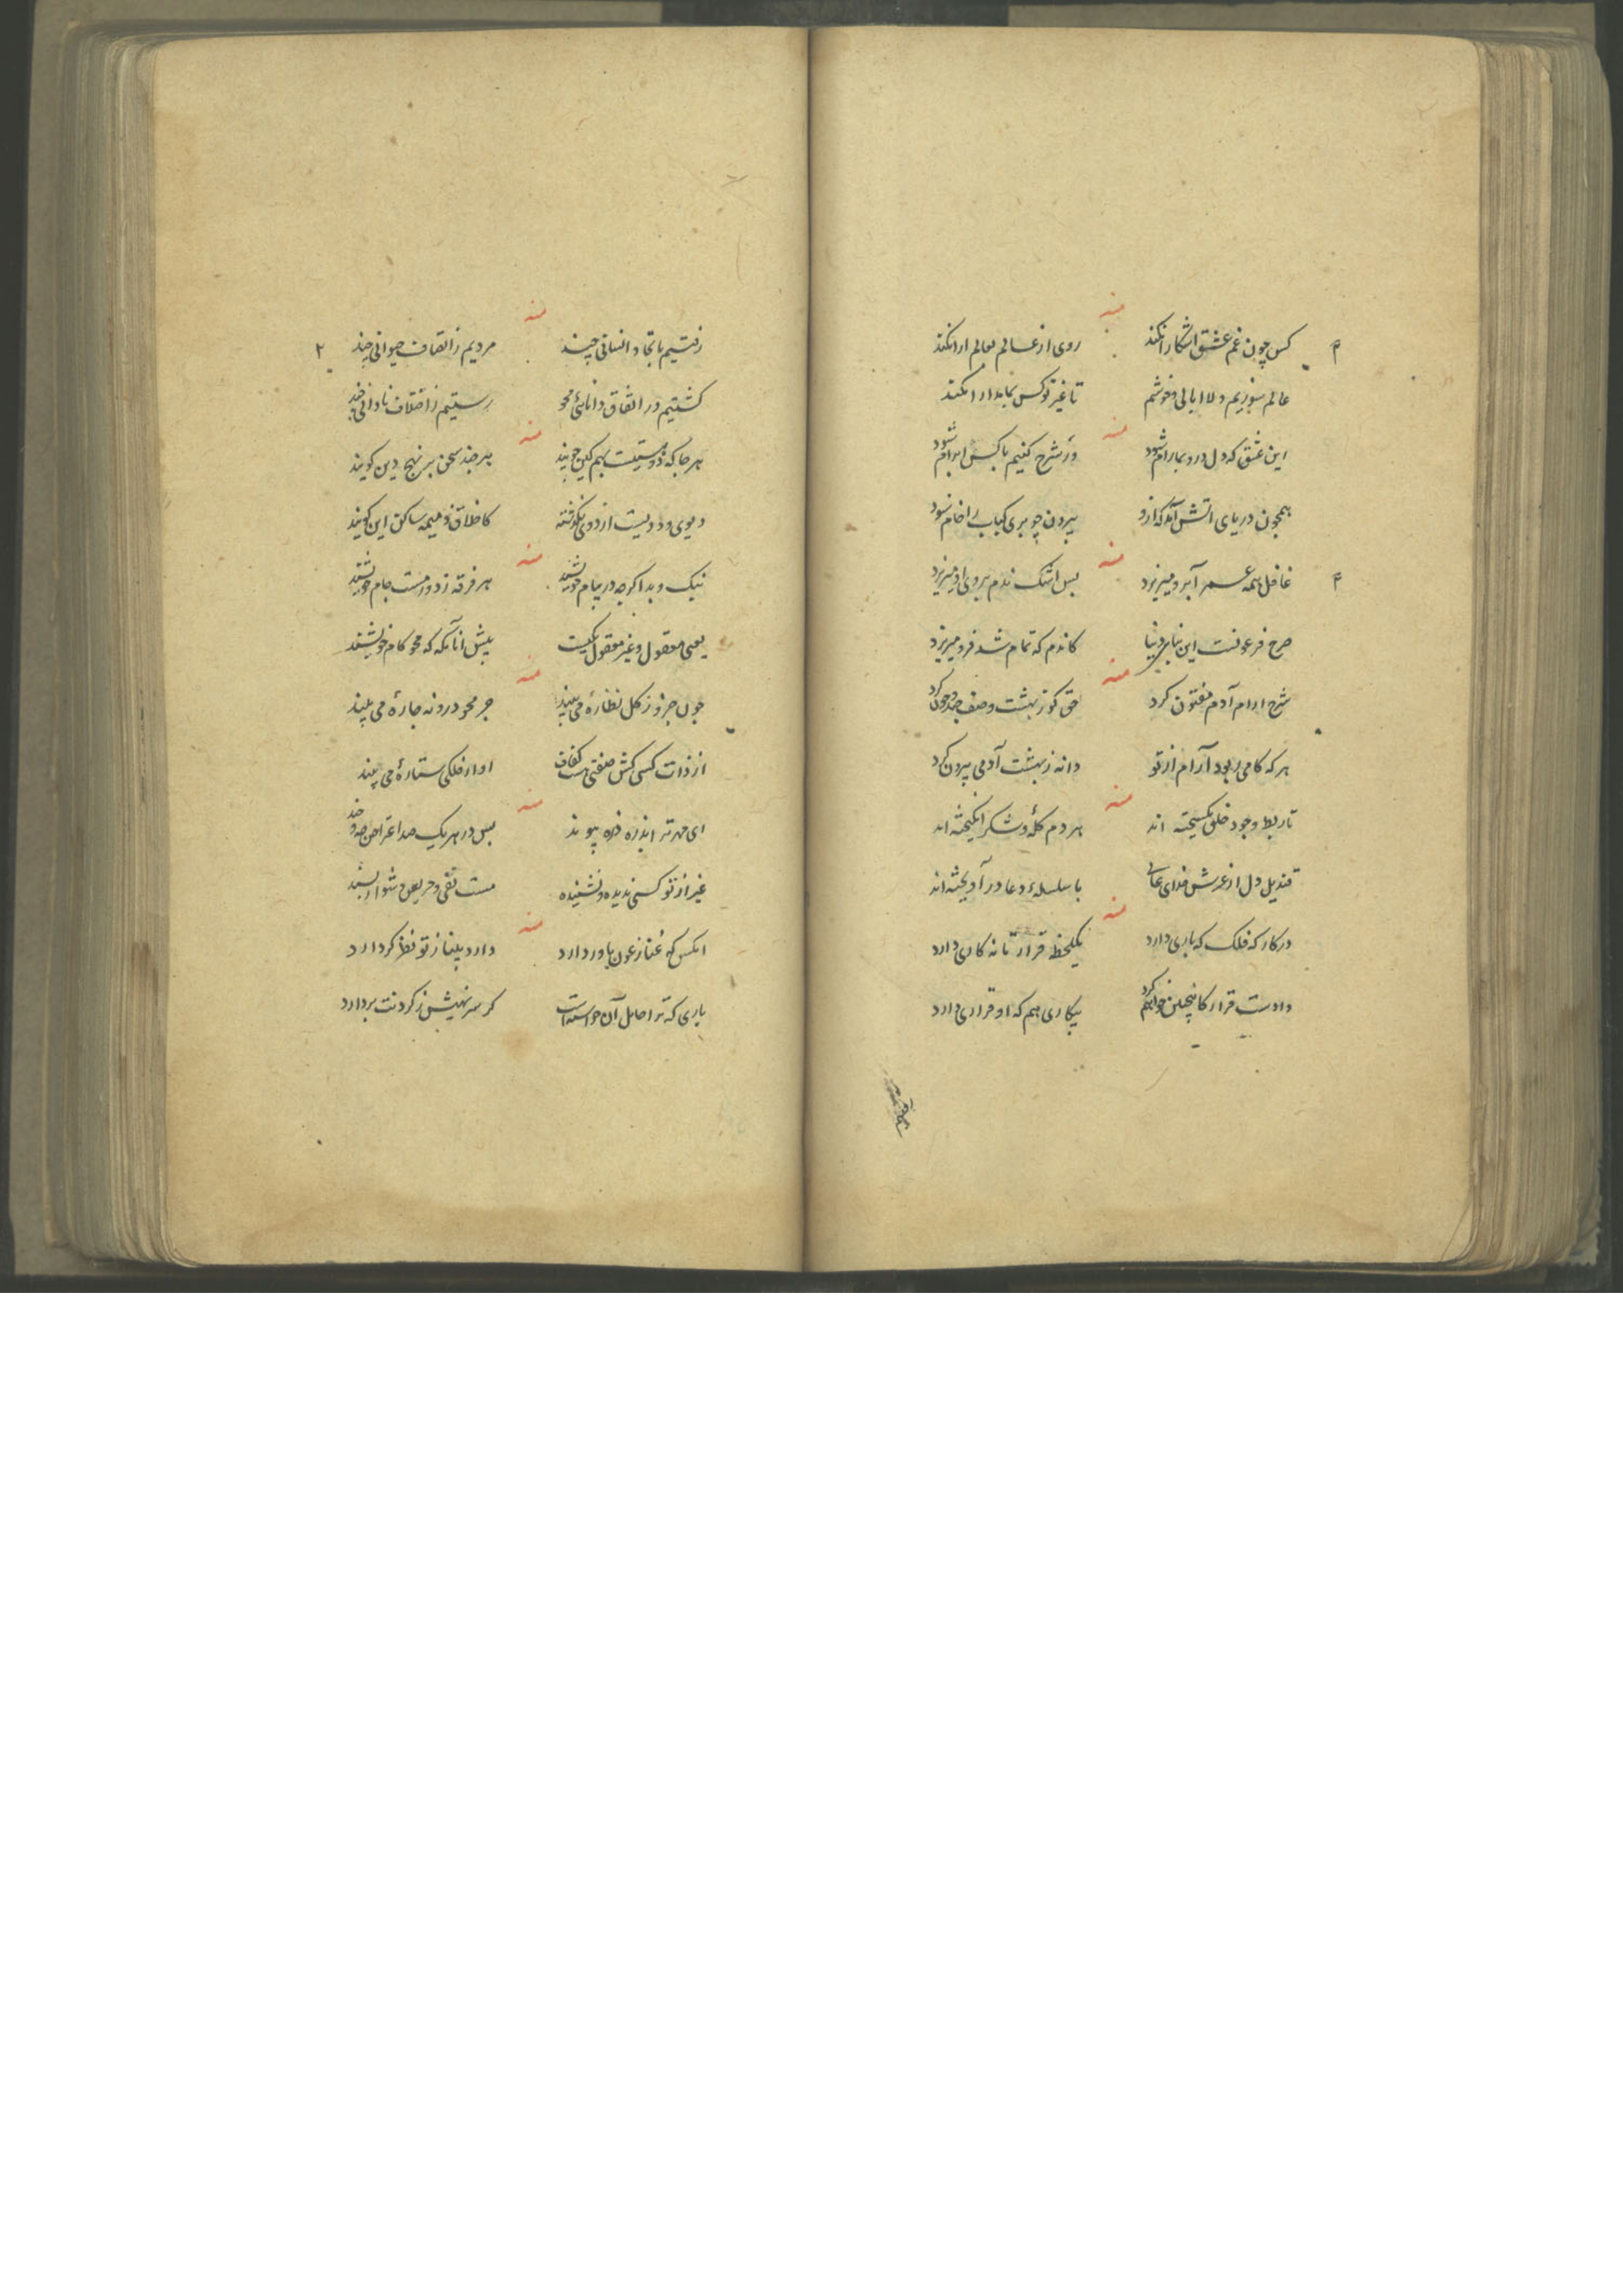 منه
کس چون غم عشق اشکارا نکند روی از عالم بعالم ارا نکند
عالم سوزیم و لاابالی و خوشیم تا غیر تو کس بما مدارا نکند
منه
این عشق که دل درو بما رام شود ور شرح کنیم با کس ابرام شود
همچون دریای اتش آمد که ازو بیرون چو بری کباب را خام شود
منه
غافل همه عمر آبرو میریزد بس اشک ندم بروی او میریزد
صرح فرعونست این بنای دنیا کاندم که تمام شد فرو میریزد
منه
شرح ارام آدم مفتون کرد حق کو ز بهشت وصف
هر که کامی ربود آرام از تو دانه ز بهشت آدمی بیرون کرد
منه
تا ربط وجود خلق بگسیخته اند هر دم گله و شکر انگیخته اند
قندیل دل از عرش خدای با سلسله دعا در آویخته اند
منه
در کار که فلک که یاری دارد یکلحظه قرار تا نه کاری دارد
دادست قرار کاینچنین خواهم کرد بیکاری هم که او قراری دارد
منه
رفتیم باتحاد انسانی چند مردیم ز اتفاق حیوانی چند
کشتیم در اتفاق دانائی محو رستیم ز اختلاف نادانی چند
منه
هر جا که دو نیست بهم کین جویند هر چند سخن بر نهج دین کویند
دیوی و ددیست از دوی نگذشته کاخلاق ذمیمه ساکن این کویند
منه
نیک و بد اکر چه در پیام خویشند هر فرقه ز دور مست جام خویشند
یعنی معقول و غیر معقول یکیست پیش انانکه که محو کام خویشند
منه
چون جزو ز کل نظاره می بیند جز محو درو نه چاره می بیند
از ذات کسی کش صفتی او از فلکی ستاره می بیند
منه
ای مهر تر اندره ذره پیوند بس در هر یک صد اعتراض
غیر از تو کسی ندیده و نشنیده مست نفی و حریص
منه
انکس که غنا ز عون یاور دارد دارد بیننا ز تو نظر کر دارد
یاری که ترا حامل آن خواسته است کر سر نهیش ز کردنت بر دارد